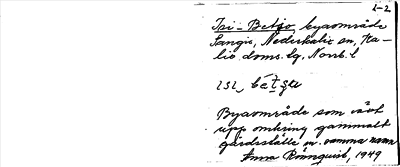 1-2
Isi-Betjo, byaområde
Sangis, Nederkalix sn, Ka-
lix doms. lg, Norrb. l
Byaområde som växt
upp omkring gammalt
gårdsställe m. samma namn
Anna Rönnquist, 1949